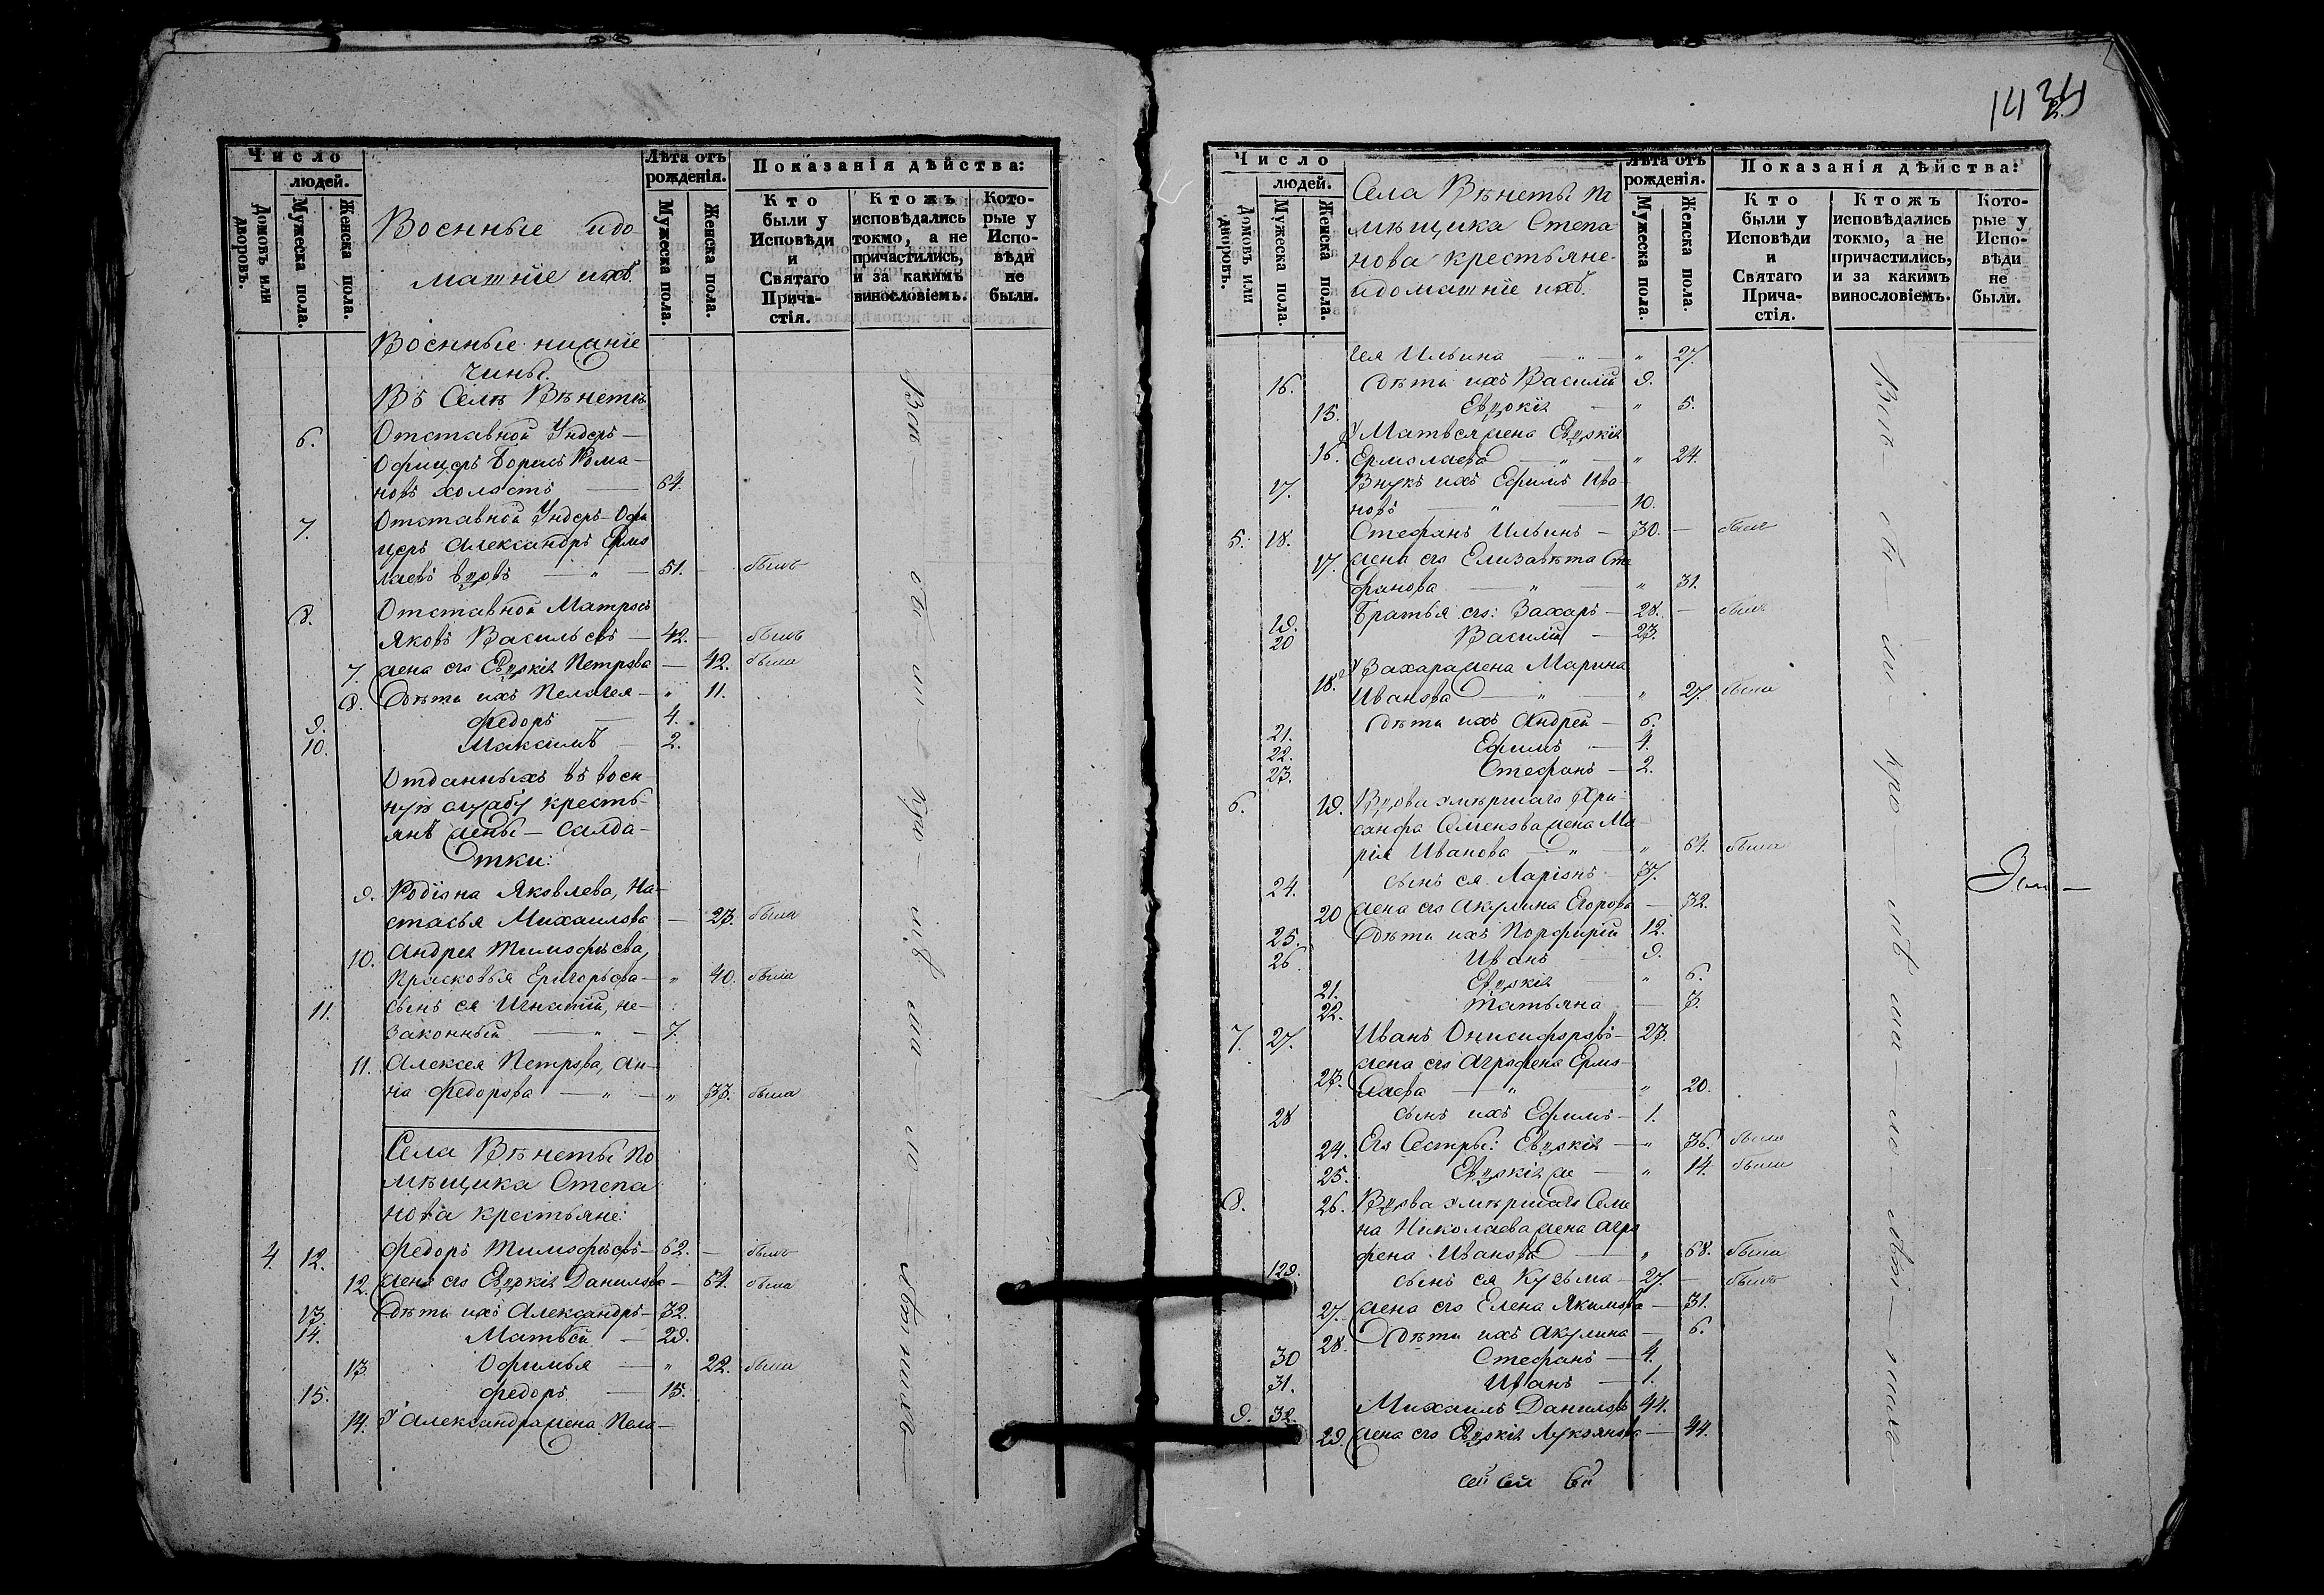 1434
Число
людей.
Домовъ или дворовъ.
Мужеска пола.
Женска пола.
Военные и до
машніе ихъ.
Лѣта отъ рожденія.
Мужеска пола.
Женска пола.
Показанія дѣйства:
Кто были у Исповѣди и Святаго Причастія.
Ктожъ исповѣдались токмо, а не причастились, и за какимъ винословіемъ.
Которые у Исповѣди не были.
Военные нижніе
чины.
Въ Селѣ Вѣнетѣ
6. Отставной Ундеръ—
Офицеръ Борисъ Рома—
новъ холостъ — 64.
7. Отставной Ундеръ-Офи
церъ Александръ Ермо
лаевъ вдовъ — „ — 51. — былъ
8. Отставной Матросъ
Яковъ Васильевъ — 42. — былъ
7. жена его Евдокія Петрова — 42. была
8. Дѣти ихъ Пелагея — „ 11.
9. Федоръ — 4.
10. Максимъ — 2.
Отданныхъ въ воен
ную службу кресть-
янъ жены — салда-
тки:
9. Родіона Яковлева, На-
стасья Михаилова — 23. была
10. Андрея Тимофѣева,
Прасковья Григорьева — „ 40. была
11. сынъ ея Игнатій, не-
законный — „ — 7.
11. Алексея Петрова, Ан-
на Федорова — „ — „ 33. была
Села Вѣнеты по
мѣщика Степа
нова крестьяне:
4. 12. Федоръ Тимофѣевъ — 62. — былъ
12. жена его Евдокія Данилова — 64. была
13. Дѣти ихъ Александръ — 32.
14. Матвѣй — 29.
13. Офимья — „ 22. была
15. Федоръ — 15.
14. У Александра жена Пела—
Число
людей.
Домовъ или дворовъ.
Мужеска пола.
Женска пола.
Села Вѣнеты по
мѣщика Степа
нова крестьяне
и домашніе ихъ.
Лѣта отъ рожденія.
Мужеска пола.
Женска пола.
Показанія дѣйства:
Кто были у Исповѣди и Святаго Причастія.
Ктожъ исповѣдались токмо, а не причастились, и за какимъ винословіемъ.
Которые у Исповѣди не были.
гея Ильина — „ — „ 27.
16. Дѣти ихъ Василій 9.
15. Евдокія — „ 5.
У Матвея жена Евдокія
16. Ермолаева — „ — „ 24.
17. Внукъ ихъ Ефимъ Ива-
новъ — „ — 10.
5. 18. Стефанъ Ильинъ — 30. — былъ
17. жена его Елизавѣта Сте
фанова — „ „ 31.
19. Братья его: Захаръ — 28. — былъ
20 Василій — 23.
У Захара жена Марина
18. Иванова — „ — „ 27. была
21. Дѣти ихъ Андрей — 6.
22. Ефимъ — 4.
23. Стефанъ — 2.
6. 19. Вдова умершаго Хри
санфа Семенова жена Ма-
рія Иванова — „ — „ 64. была
24. сынъ ея Ларіонъ — 37.
20 жена его Акулина Егорова — 32.
25. Дѣти ихъ Порфирій 12.
26. Иванъ 9.
21. Евдокія — „ 6.
22. Татьяна — 3.
7. 27. Иванъ Онисифоровъ — 23.
жена его Аграфена Ермо-
23. лаева — „ „ 20.
28 сынъ ихъ Ефимъ — 1.
24. Его Сестры: Евдокія — „ 36. была
25. Евдокія же — „ 14. была
8. 26. Вдова умершаго Семе
на Николаева жена Агра
фена Иванова — „ 68. была
129. сынъ ея Кузьма — 27. — былъ
27. жена его Елена Якимова — 31.
28. Дѣти ихъ Акулина — 6.
30 Стефанъ — 4.
31. Иванъ — 1.
9. 32. Михаилъ Даниловъ 44.
29. жена его Евдокія Лукоянова — 44.